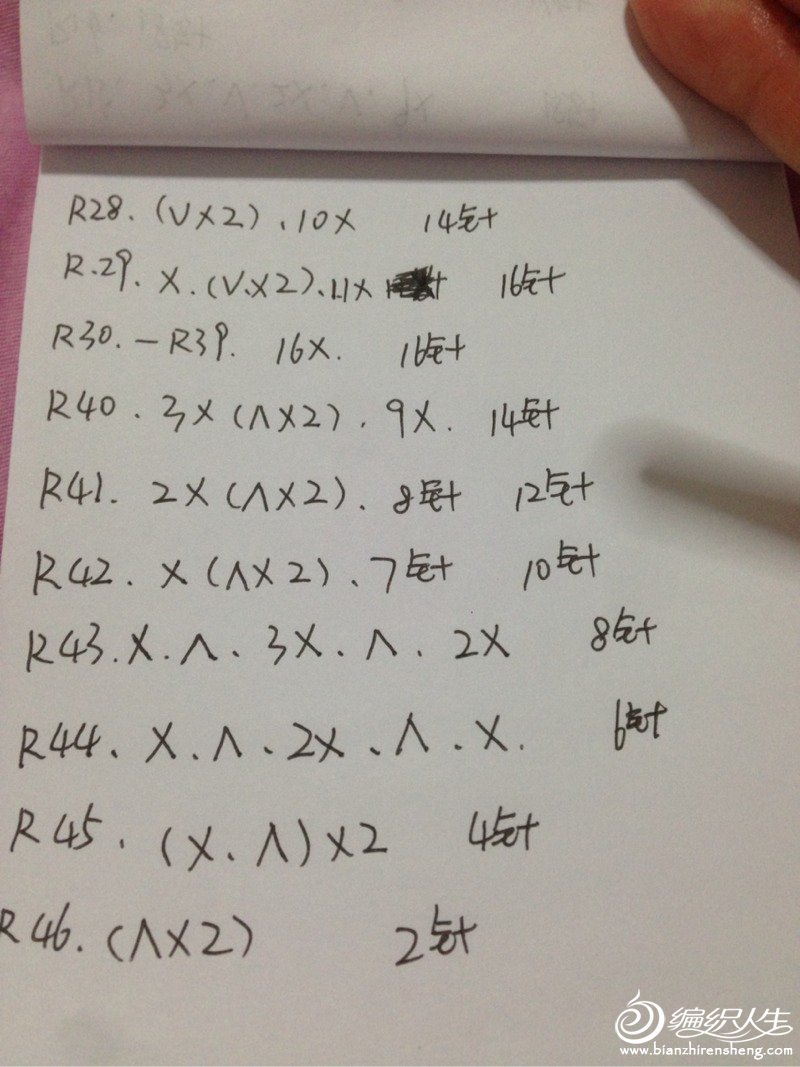 R28. (V×2).10X 14针
R.29. X.(V.×2).11X 16针
R30.—R39. 16X. 16针
R40. 3X(Λ×2).9X. 14针
R41. 2X(Λ×2).8针 12针
R42. X(Λ×2).7针 10针
R43.X.Λ.3X.Λ.2X 8针
R44.X.Λ.2X.Λ.X. 6针
R45.(X.Λ)×2 4针
R46.(Λ×2) 2针
编织人生
www.bianzhirensheng.com